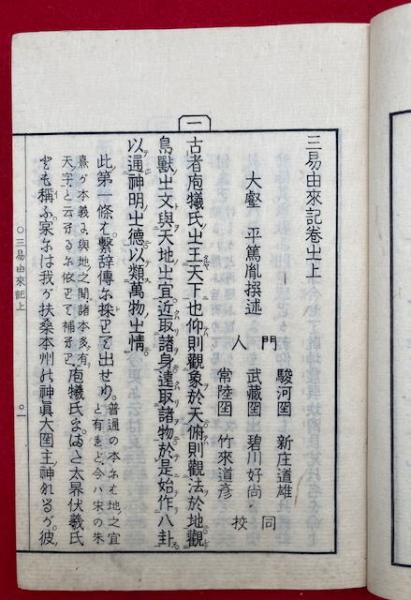 三易由來記卷㞢上
大壑 平篤胤撰述
門人
駿河圀 新庄道雄
武藏圀 碧川好尚
常陸圀 竹來道彦
同校
一
古者庖犧氏㞢王天下也仰則觀象於天俯則觀法於地觀
鳥獸㞢文與天地㞢宜近取諸身遠取諸物於是始作八卦
以通神明㞢德以類萬物㞢情
此ノ第一條は繫辭傳に採て出せり。普通の本には地之宜
と有きど、今ハ宋の朱
熹が本義に與地之間諸本多有
天ノ字と云るに依て補
庖犧氏とは太昊伏羲氏
とも稱ふ寔には我が扶桑本州の神眞大圀主神なるが彼
〇三易由來記上
〇一